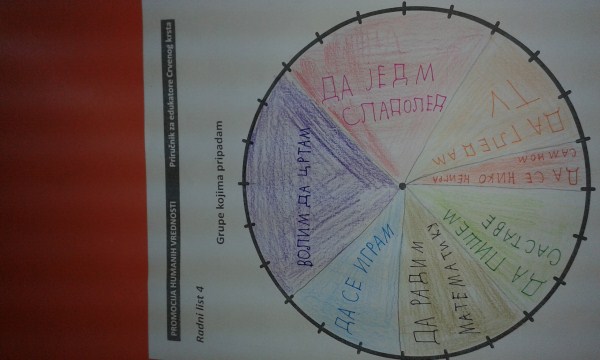 PROMOCIJA HUMANIH VREDNOSTI
Priručnik za edukatore Crvenog krsta
Radni list 4
Grupe kojima pripadam
ВОЛИМ ДА ЦРТАМ
ДА ЈЕДМ
СЛАДОЛЕД
ДА ГЛЕДАМ
TV
ДА СЕ НИКО НЕИГРА
САМНОМ
ДА ПИШЕМ
САСТАВЕ
ДА РАДИМ
МАТЕМАТИКУ
ДА СЕ ИГРАМ